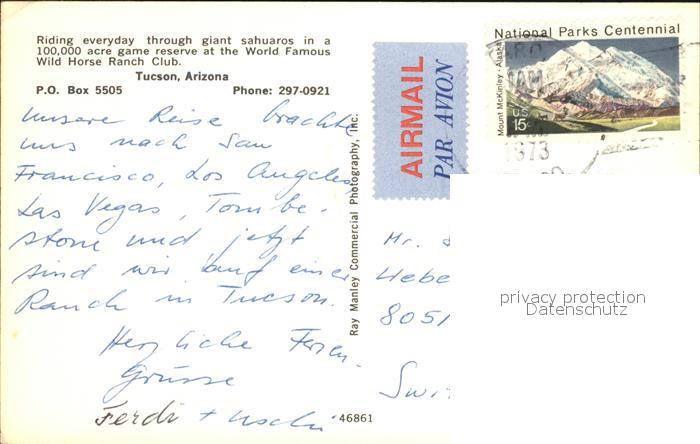 Riding everyday through giant sahuaros in a
100,000 acre game reserve at the World Famous
Wild Horse Ranch Club.
Tucson, Arizona
P.O. Box 5505 Phone: 297-0921
unsere Reise brachte
uns nach San
Francisco, Los Angeles,
Las Vegas, Tombe-
stone und jetzt
sind wir auf einer
Ranch in Tucson.
Herzliche Ferien-
Grüsse
Ferdi + Uschi
46861
Ray Manley Commercial Photography, Inc.
AIRMAIL
PAR AVION
National Parks Centennial
Mount McKinley · Alaska
U.S.
15c
1973
Mr.
Uebe
8051
Swi
privacy protection
Datenschutz